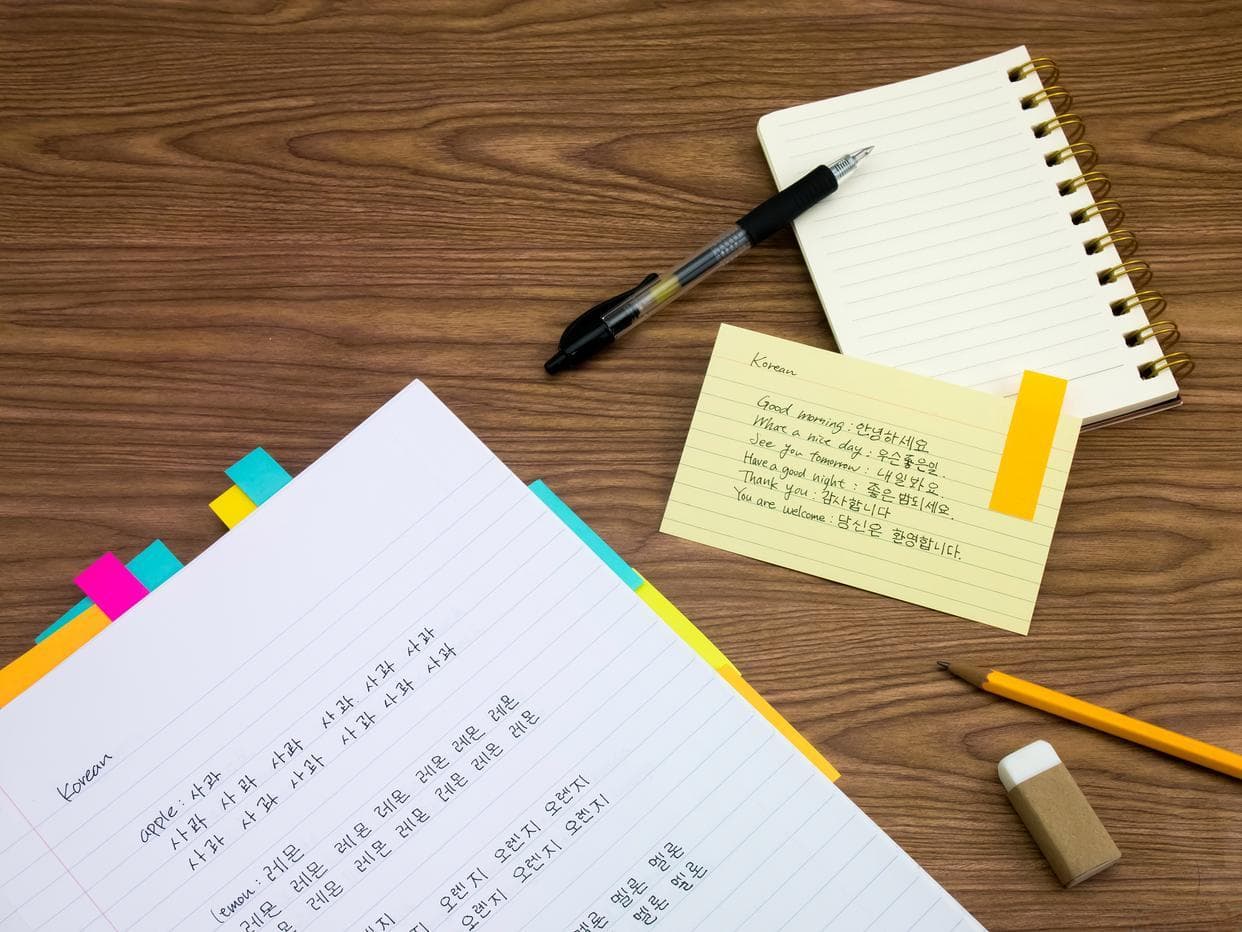 Korean
Good morning : 안녕하세요
What a nice day : 무슨좋은일
See you tomorrow : 내일봐요.
Have a good night : 좋은밤되세요.
Thank you : 감사합니다
You are welcome : 당신은 환영합니다.
Korean
apple : 사과
사과 사과 사과 사과 사과 사과
사과 사과 사과 사과 사과 사과
lemon : 레몬
레몬 레몬 레몬 레몬 레몬 레몬 레몬
레몬 레몬 레몬 레몬 레몬 레몬
지 오렌지 오렌지 오렌지
오렌지 오렌지 오렌지
멜론 멜론 멜론
멜론 멜론